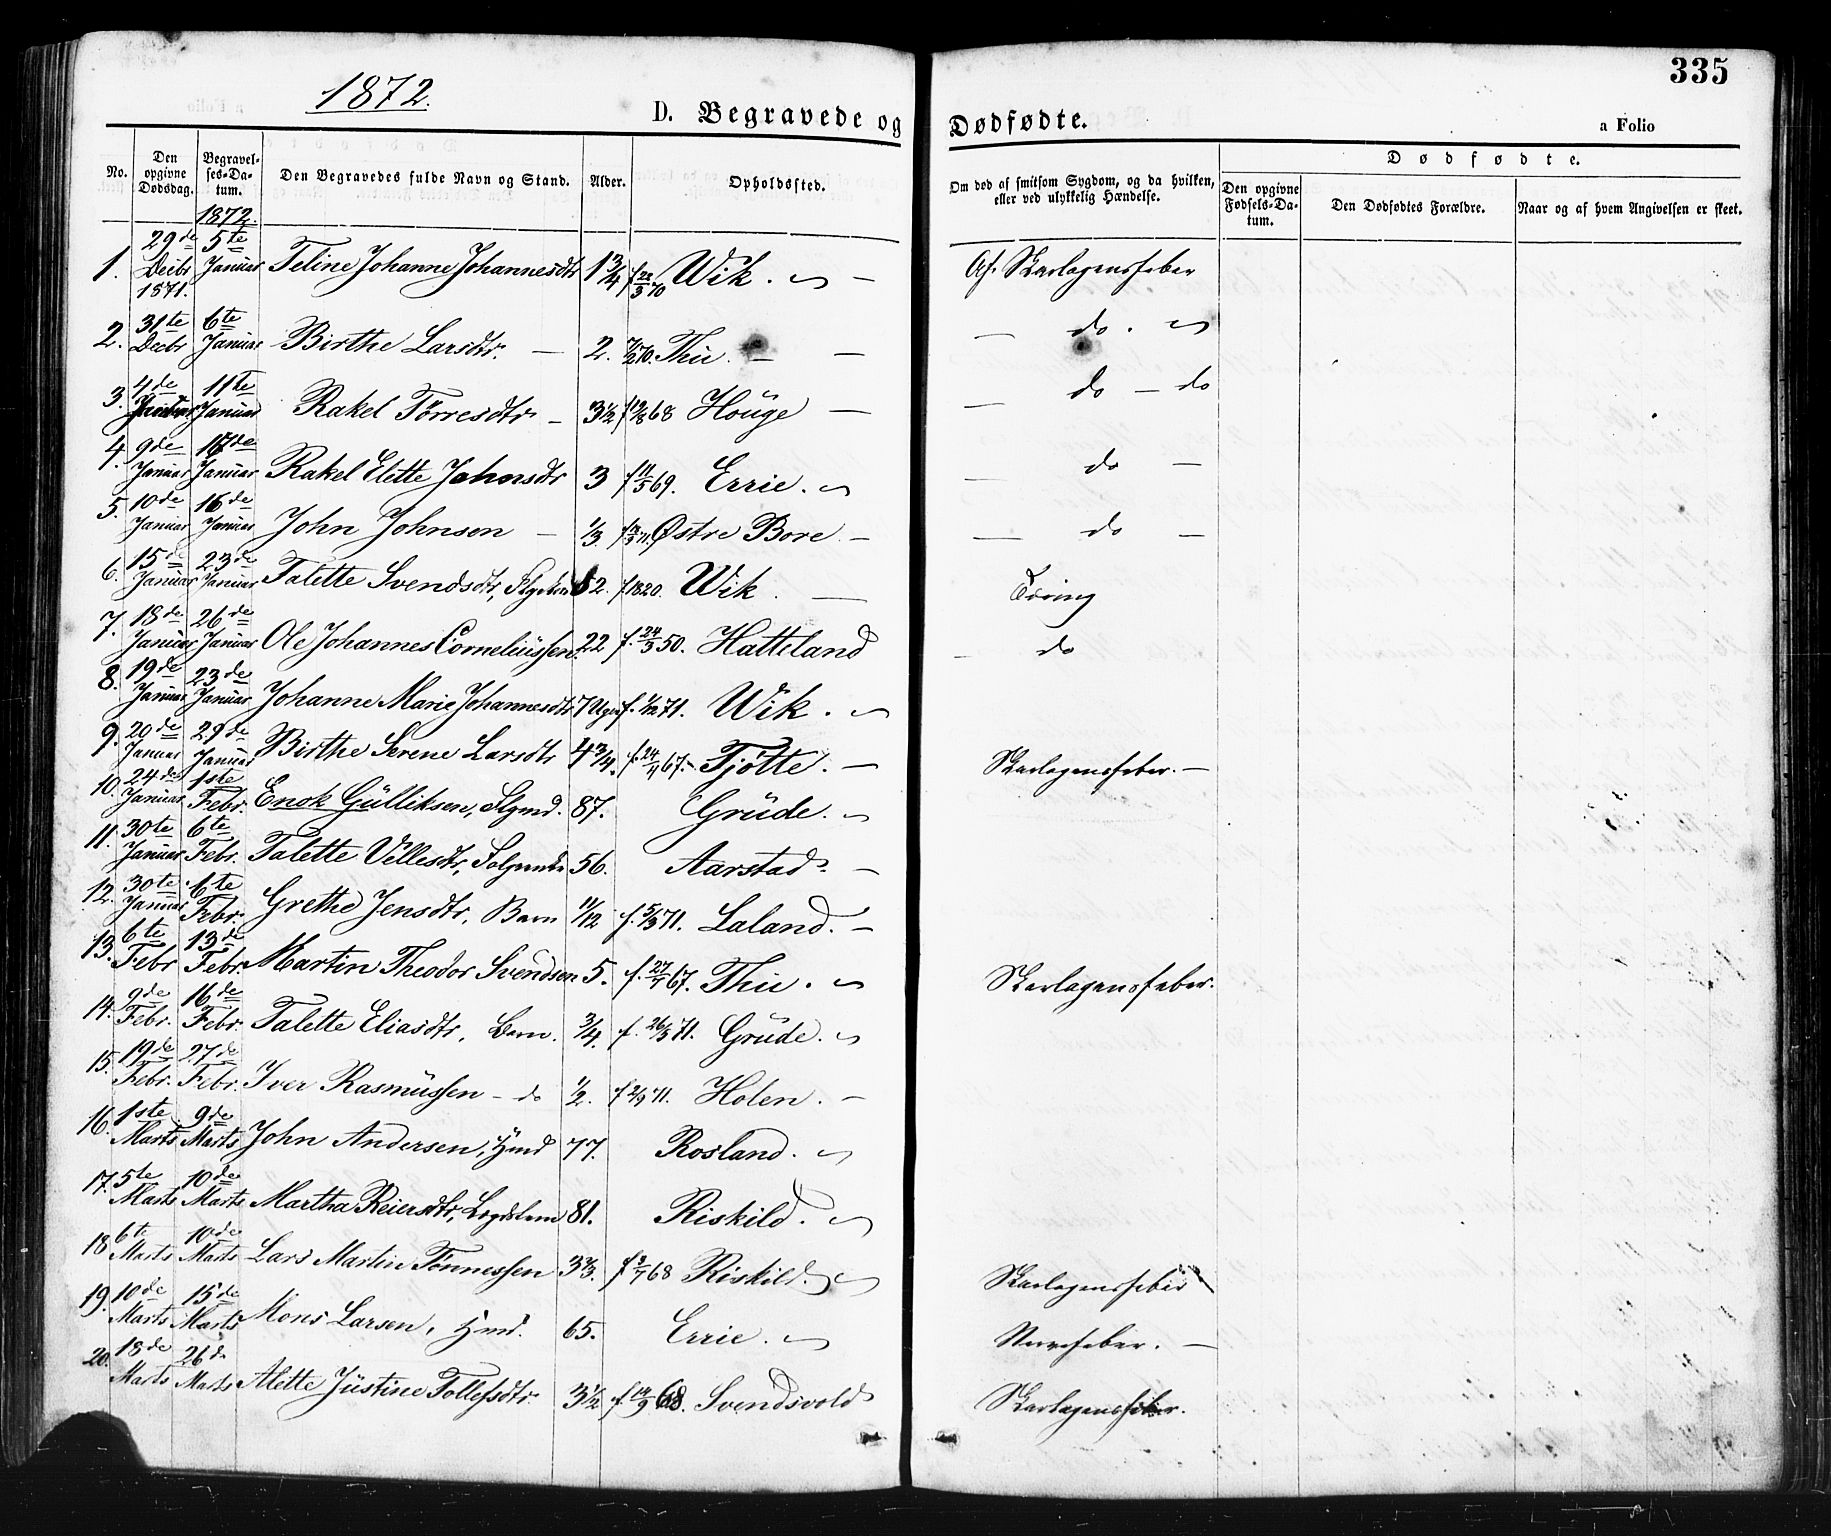 335
1872.
D. Begravede og Dødfødte.
a Folio
No.
Den opgivne Dødsdag.
Begravelses-Datum.
Den Begravedes fulde Navn og Stand.
Alder.
Opholdssted.
Om død af smitsom Sygdom, og da hvilken, eller ved ulykkelig Hændelse.
Dødfødte.
Den opgivne Fødsels-Datum.
Den Dødfødtes Forældre.
Naar og af hvem Angivelsen er skeet.
1872.
1. 29de Decbr 1871. 5te Januar Teline Johanne Johannesdtr 1 3/4 f 22/3 70 Wik. Af Skarlagensfeber
2. 31te Decbr 6te Januar Birthe Larsdtr. — 2. Thu. — — do.
3. 4de Januar 11te Januar Rakel Torresdtr — 3 1/2 68 Houge — — do — do
4. 9de Januar 17de Januar Rakel Elette Johnsdtr 3 f 11/5 69. Errie. — do —
5. 10de Januar 16de Januar John Johnson — 1/3. Østre Bore. — — do —
6. 15de Januar 23de Januar Talette Svendsdtr, 52. f. 1820. Wik. — Tæring
7. 18de Januar 26de Januar Ole Johannes Corneliussen. 22 f. 24/3 50. Hatteland — do
8. 19de Januar 23de Januar Johanne Marie Johannesdtr 7 Uger f. 1/12 71. Wik.
9. 20de Januar 29de Januar Birthe Serene Larsdtr 4 3/4. f. 24/4 67. Tjøtte. — Skarlagensfeber. —
10. 24de Januar 1ste Febr. Enok Gulliksen, 87. Grude.
11. 30te Januar 6te Febr. Talette Vellesdtr, 56. Aarstad. —
12. 30te Januar 6te Febr. Grethe Jensdtr, Barn 11/12 f. 5/3 71. Laland. —
13. 6te Febr 13de Febr. Martin Theodor Svendsen 5. f. 27/1 67. Thu. Skarlagensfeber.
14. 9de Febr. 16de Febr. Talette Eliasdtr, Barn. 3/4. f. 26/3 71. Grude.
15. 19de Febr. 27de Febr. Iver Rasmussen — do 1/2. f 2/9 71. Holen. —
16. 1ste Marts 9de Marts John Andersen, 77. Rosland.
17. 5te Marts 10de Marts Martha Reiersdtr, Lægdslem 81. Riskild.
18 6te Marts 10de Marts Lars Martin Tønnessen 3 2/3. f 3/7 68 Riskild. Skarlagensfeber
19. 10de Marts 15de Marts Mons Larsen, 65. Errie. Nervefeber. —
20. 18de Marts 26de Marts Alette Justine Tollefsdtr. 3 1/2 f. 14/9 68. Svendsvold Skarlagensfeber.